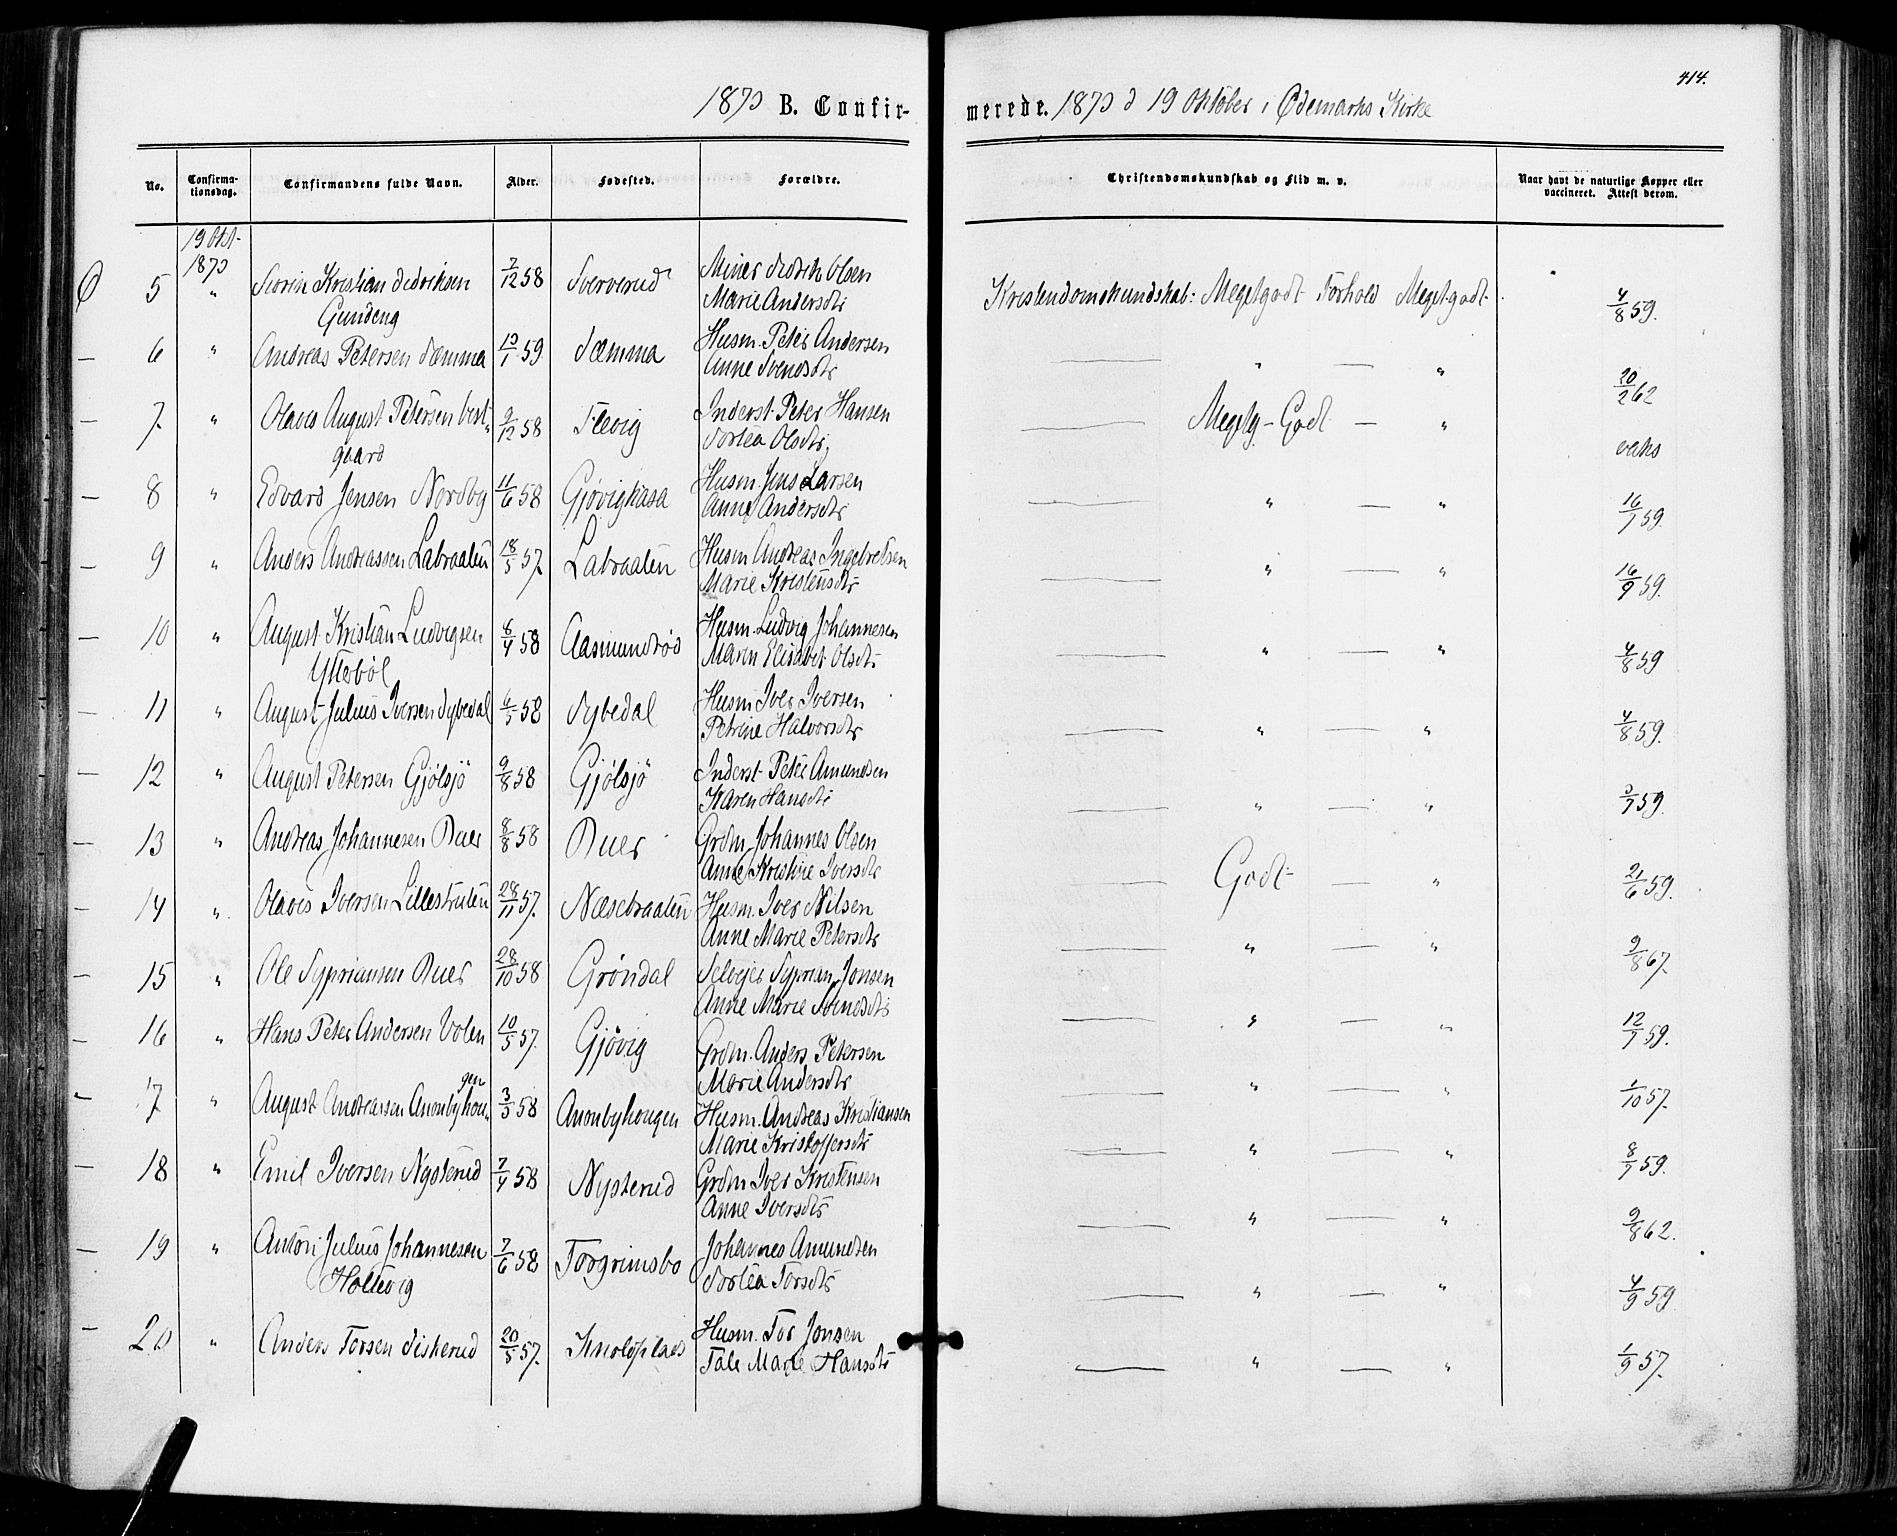 414.
1873 B. Confir-
merede. 1873 d 19 Oktober i Ødemarks Kirke
No. Confirma-tionsdag. Confirmandens fulde Navn. Alder. Fødested. Forældre.
Christendomskundskab og Flid m. v. Naar havt de naturlige Kopper eller vaccineret. Attest derom.
19 Okt-
1873
5 " Kristian Didriksen 7/12 58 Sververud
Gundeng
Didrik Olsen
Marie Andersdtr
Kristendomskundskab: Megetgodt Forhold Megetgodt 4/8 59.
6 " Andreas Petersen Dæmma 13/1 59 Dæmma Husm. Peter Andersen
Anne Svendsdtr
" — " 20/2 62
7. " Olaves August Petersen Vest-
gaard 9/12 58 Flevig Inderst Peter Hansen
Dortea Olsdtr,
Megetg - Godt — " vaks
8 " Edvard Jensen Nordby 11/6 58 Gjøvigkasa Husm. Jens Larsen
Anne Andersdtr
" — " 16/7 59.
9 " Anders Andreassen Labraaten 18/5 57. Labraaten Husm Andreas Ingebretsen
Marie Kristensdtr
" — " 16/9 59.
10 " August Kristian Ludvigsen 8/4 58 Aasmundrød Husm. Ludvig Johannesen
Ytterbøl
Maren Elisabet Olsdtr
" — " 4/8 59
11 " August Julius Iversen Dybedal 6/5 58 Dybedal Husm Iver Iversen
Petrine Halvorsdtr
" — " 4/8 59.
12 " August Petersen Gjølsjö 9/8 58 Gjølsjö Inderst Peter Amundsen
Karen Hansdtr
" — " 3/7 59.
13 " Andreas Johannesen Buer 8/8 58 Buer Grdm. Johannes Olsen
Anne Kristine Iversdtr
Godt — " 21/6 59.
14 " Olaves Iversen Lillestruten 28/11 57. Næsebraaten Husm. Iver Nilsen
Anne Marie Petersdtr
" — " 9/8 67.
15 " Ole Sypriansen Buer 28/10 58 Grøndal Selvejer Syprian Jonsen
Anne Marie Svendsdtr
" — " 12/7 59.
16 " Hans Peter Andersen Volen 10/5 57. Gjøvig Grdm. Anders Petersen
Marie Andersdtr
" — " 1/10 57.
17. " August Andreassen Anonbyhou-
gen 3/3 58 Anonbyhougen Husm. Andreas Kristiansen
Marie Kristoffersdtr
" — " 8/7 59.
18 " Emil Iversen Nysterud 7/4 58 Nysterud Grdm Iver Kristensen
Anne Iversdtr
" — " 9/8 62.
19 " Anton Julius Johannesen 7/6 58 Torgrimsbo Johannes Amundsen
Holtevig
Dortea Torsdtr
" — " 4/9 59
20 " Anders Torsen Diskerud 20/5 57. Husm. Tor Jonsen
Tale Marie Hansdtr
" — " 1/9 57.